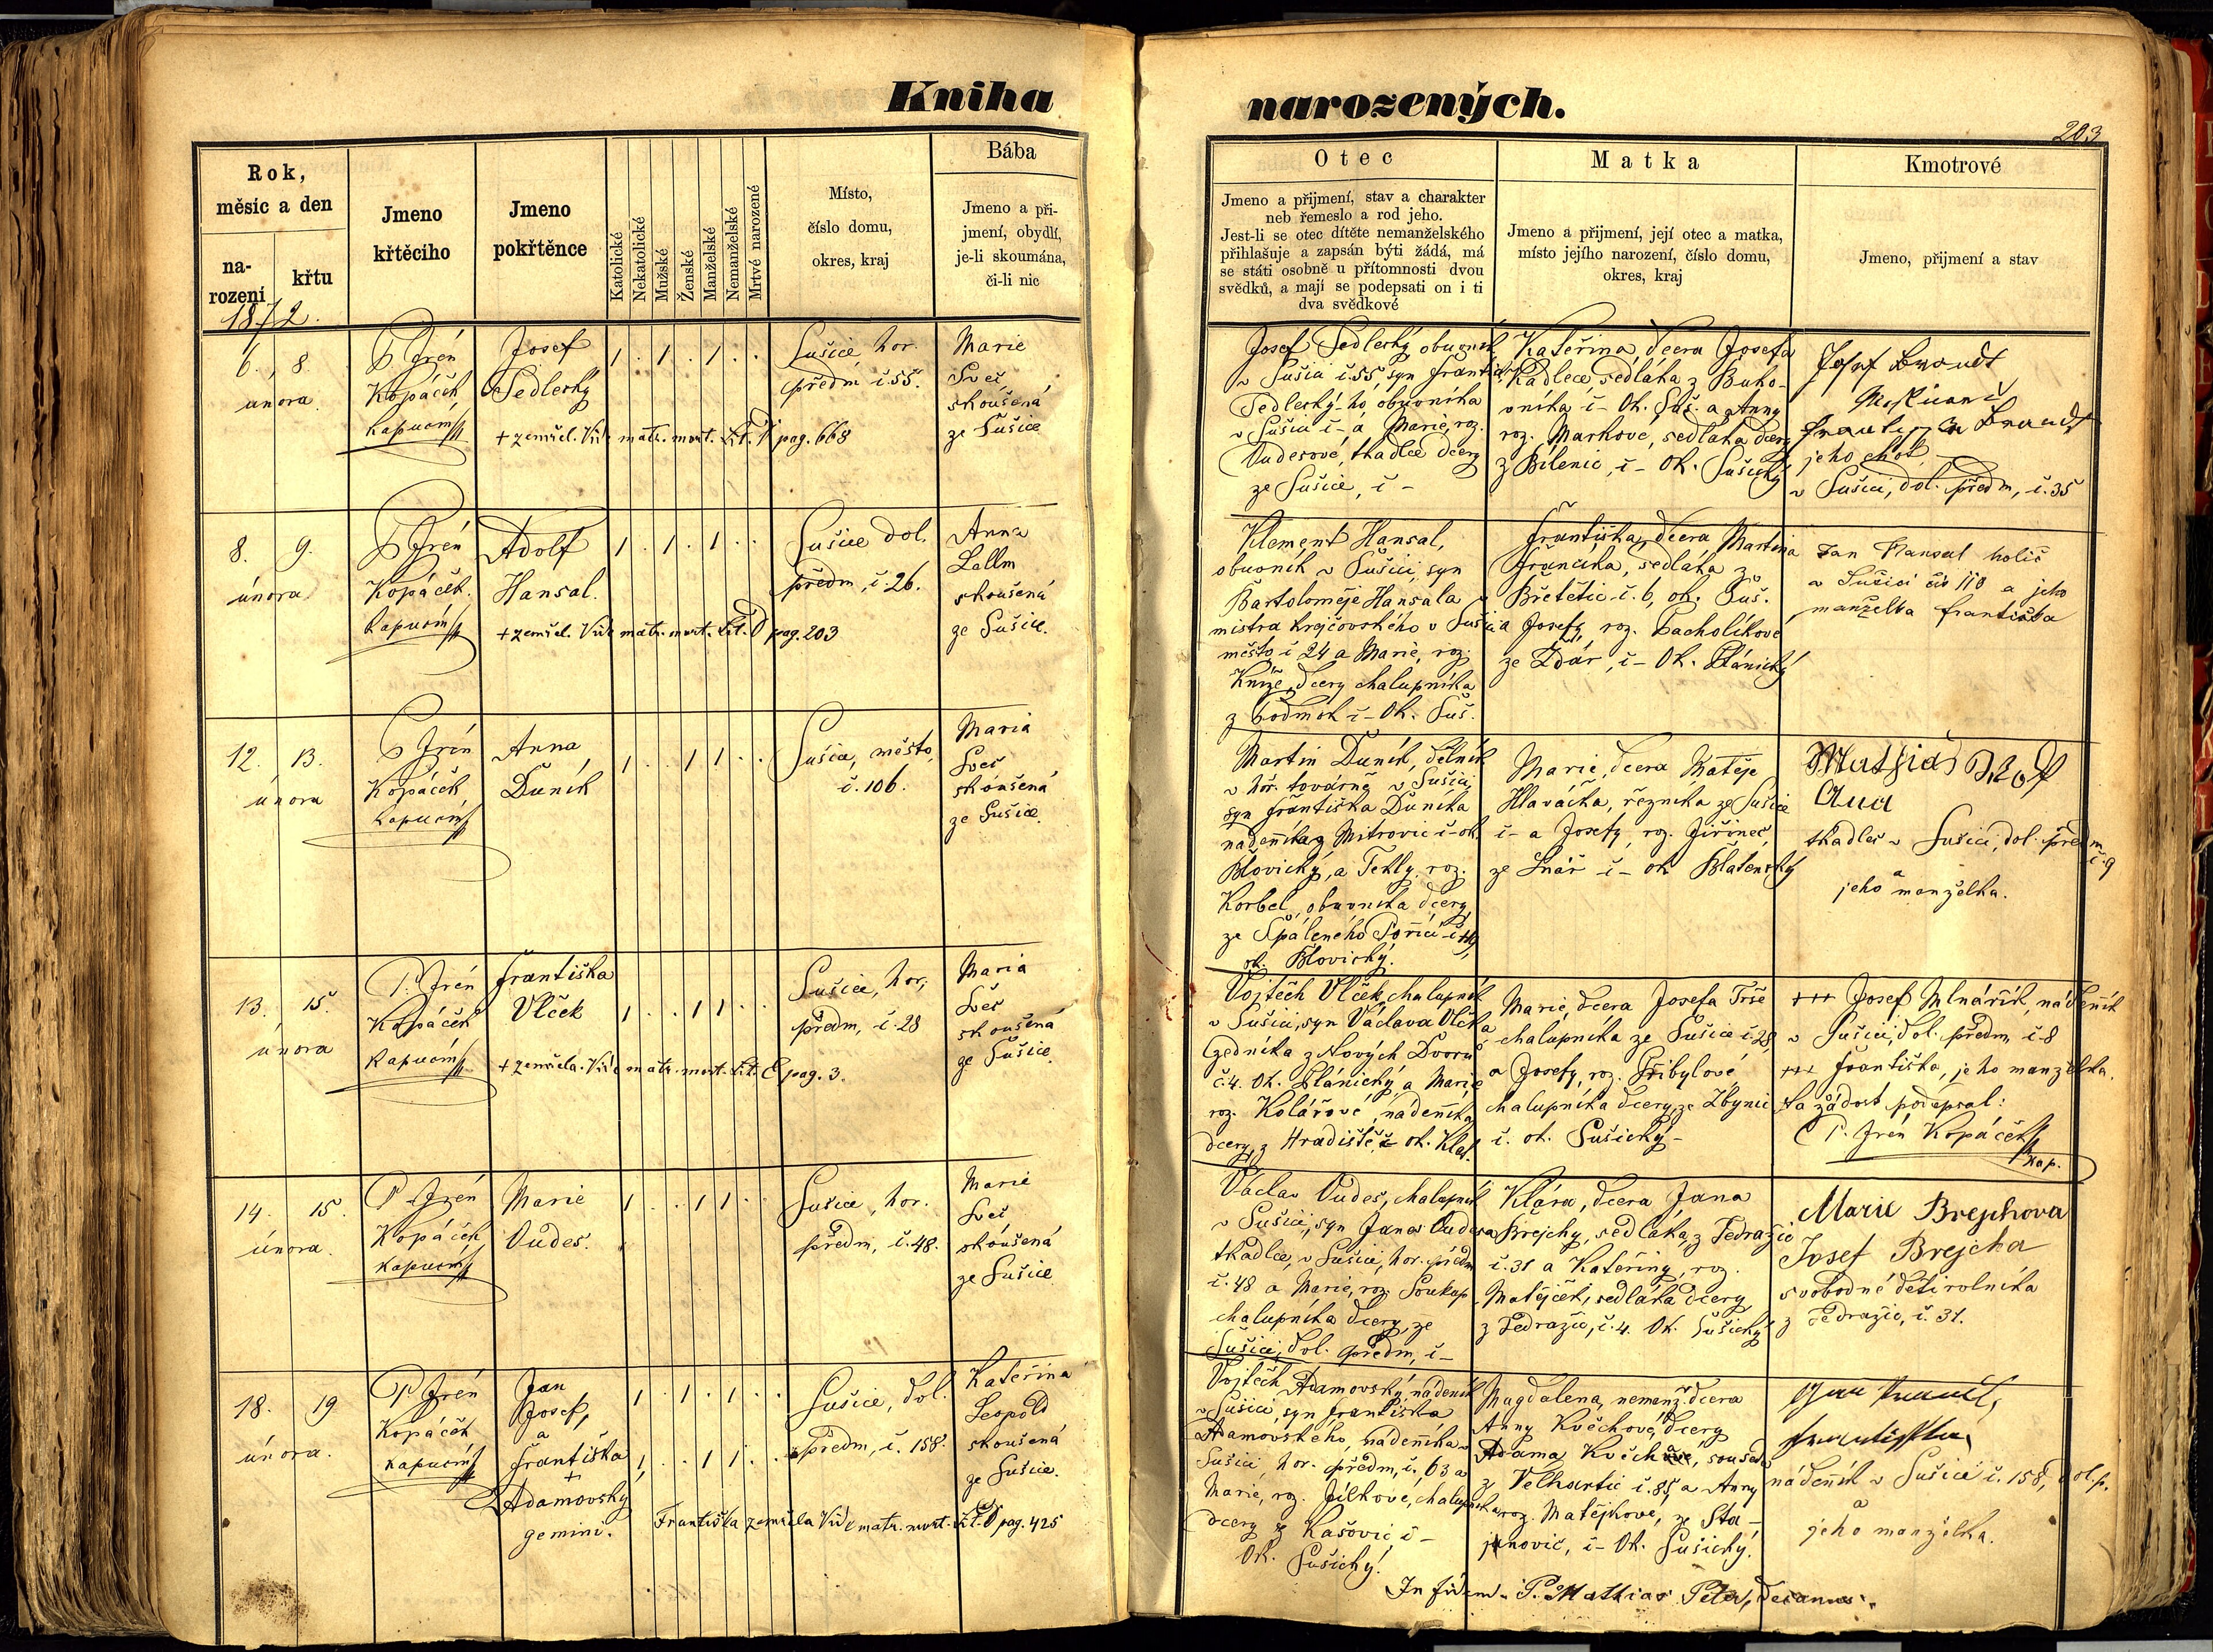 Kniha
narozených.
203
Rok,
měsíc a den
na-
rození
křtu
1872.
Jmeno
křtěcího
Jmeno
pokřtěnce
Katolické
Nekatolické
Mužské
Ženské
Manželské
Nemanželské
Mrtvé narozené
Místo,
číslo domu,
okres, kraj
Bába
Jmeno a pří-
jmení, obydlí,
je-li skoumána,
či-li nic
Otec
Jmeno a přijmení, stav a charakter
neb řemeslo a rod jeho.
Jest-li se otec dítěte nemanželského
přihlašuje a zapsán býti žádá, má
se státi osobně u přítomnosti dvou
svědků, a mají se podepsati on i ti
dva svědkové
Matka
Jmeno a přijmení, její otec a matka,
místo jejího narození, číslo domu,
okres, kraj
Kmotrové
Jmeno, přijmení a stav
6. 8.
února
P. Irén
Kopáček
kapucín
Josef
Sedlecký
1 . 1 . 1 . .
+ zemřel. Viz matr. mort. Lit. pag. 668
Sušice hor.
předm č. 55.
Marie
Sveč
skoušená
ze Sušice
Josef Sedlecký obuvník
v Sušici č. 55 syn Františ.
Sedlecký-ho, obuvníka
v Sušici č - a Marie, roz.
Oudesové, tkadlce dcery
ze Sušice, č -
Kateřina, dcera Josefa
Kadlece, sedláka z Buko-
vníka č - Ok. Suš. a Anny
roz. Markové, sedláka dcery
z Bílenic, č - Ok. Sušický
Josef Brandt
Brandt
jeho choť
v Sušici, dol. předm, č. 35
8. 9.
února
P. Irén
Kopáček.
kapucín
Adolf
Hansal.
1 . 1 . 1 . .
+ zemřel. Viz matr. mort. Lit. D pag. 203
Sušice dol.
předm, č. 26.
Anna
Lallm
skoušená
ze Sušice.
Klement Hansal,
obuvník v Sušici, syn
Bartoloměje Hansala
mistra krejčovského v Sušici
město č 24 a Marie, roz.
Kníže, dcery chalupníka
z Podmok č - Ok. Suš.
Františka, dcera Martina
Frančíka, sedláka z
Břetětic č. 6, ok. Suš.
a Josefy, roz. Pacholíkové
ze Ždár, č - Ok. Plánický
Jan Hansal holič
v Sušici čís 110 a jeho
manželka Františka
12. 13.
února
P. Irén
Kopáček
kapucín
Anna
Duník
1 . . 1 1 . .
Sušice, město,
č. 106.
Maria
Sveč
skoušená
ze Sušice.
Martin Duník, dělník
v továrně v Sušici,
syn Františka Duníka
nádeníka z Mitrovic č - ok.
Blovický, a Tekly, roz.
Korbel, obuvníka dcery,
ze Spáleného Poříčí č
ok. Blovický.
Marie, dcera Matěje
Hlaváčka, řezníka ze Sušice
č - a Josefy, roz. Jiřinec,
ze Lnář - č - ok Blatenský
Mathias Wolf
Ana
tkadlec v Sušici, dol. předm
č. 9
a
jeho manželka.
13. 15.
února
P. Irén
Kopáček
kapucín
Františka
Vlček
1 . . 1 1 . .
+ zemřela. Viz matr. mort. Lit. E pag. 3.
Sušice, hor,
předm, č. 28
Maria
Sveč
skoušená
ze Sušice.
Vojtěch Vlček, chalupník
v Sušici, syn Václava Vlčka
zedníka z Nových Dvorů
č. 4. Ok. Plánický, a Marie
roz. Kolářové, nádeníka
dcery, z Hradiště, č ok. Klat.
Marie, dcera Josefa Trše
chalupníka ze Sušice č 28,
a Josefy, roz. Přibylové
chalupníka dcery, ze Zbynic
č. ok. Sušický -
+++ Josef Mlnářík, nádeník
v Sušici, dol. předm, č. 8
+++ Františka, jeho manželka.
Na žádost podepsal:
P. Irén Kopáček
kap.
14. 15.
února.
P. Irén
Kopáček
kapucín
Marie
Oudes.
1 . . 1 1 . .
Sušice, hor.
předm, č. 48.
Marie
Sveč
skoušená
ze Sušice
Václav Oudes, chalupník
v Sušici, syn Jana Oudesa
tkadlce, v Sušici, hor. předm
č. 48 a Marie, roz. Soukup
chalupníka dcery, ze
Sušice, dol. předm, č -
Klára, dcera Jana
Brejchy, sedláka, z Tedražic
č. 31 a Kateřiny, roz.
Matějček, sedláka dcery
z Tedražic, č. 4. Ok. Sušický
Marie Brejchova
Josef Brejcha
svobodné děti rolníka
z Tedražic, č. 31.
18. 19
února.
P. Irén
Kopáček
kapucín
Jan
Josef,
a
Františka
+
Adamovský
gemini.
1 . 1 . 1 . .
1 . . 1 1 . .
Františka zemřela Viz matr. mort. Lit. D pag. 425
Sušice, dol.
předm, č. 158.
Kateřina
Leopold
skoušená
ze Sušice.
Vojtěch Adamovský, nádeník
v Sušici, syn Františka
Adamovského, nádeníka v
Sušici, hor. předm, č. 63 a
Marie, roz. Jílkové, chalupníka
dcery ze Kašovic č -
Ok. Sušický.
Magdalena, nemanž. dcera
Anny Květchové, dcery
Adama, souseda
z Velhartic č. 85, a Anny
roz. Matějkové, ze Sta-
janovic, č - Ok. Sušický.
Jan
Františka
nádeník v Sušici č. 158, dol. p.
a
jeho manželka.
In fidem. P. Mathias Peter, decanus.